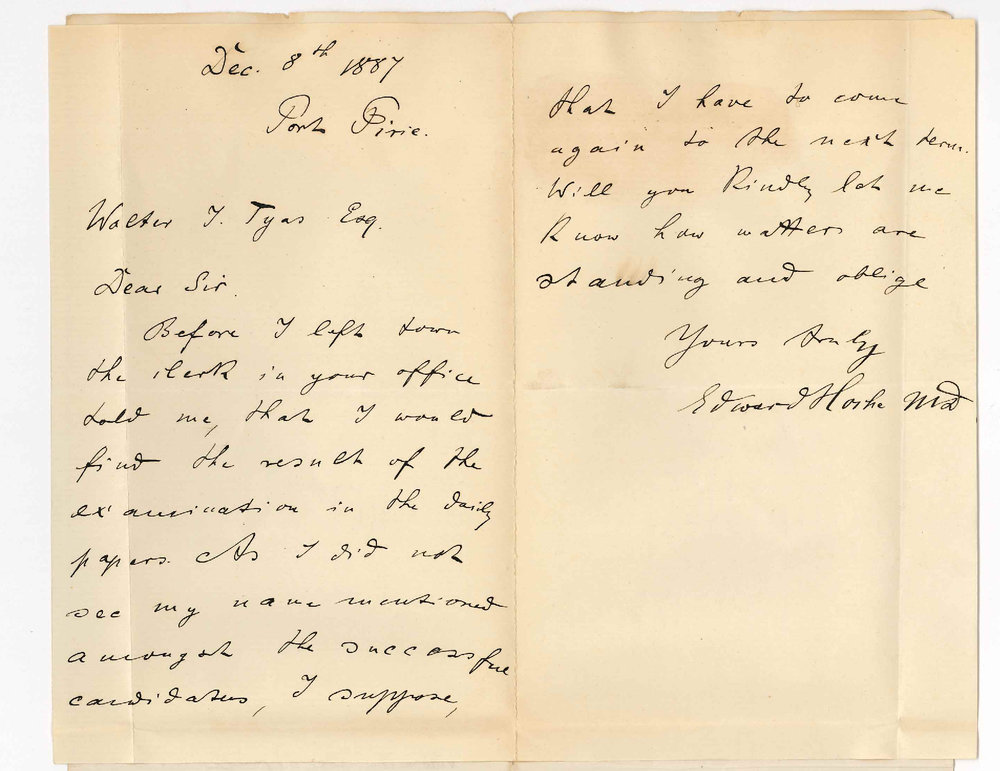 Dec. 8th 1887
Port Pirie.
Walter J. Tyas Esq.
Dear Sir.
Before I left town
the clerk in your office
told me, that I would
find the result of the
examination in the daily
papers. As I did not
see my name mentioned
amongst the successful
candidates, I suppose,
that I have to come
again to the next term.
Will you Kindly let me
Know how matters are
standing and oblige
Yours truly
Edward MD